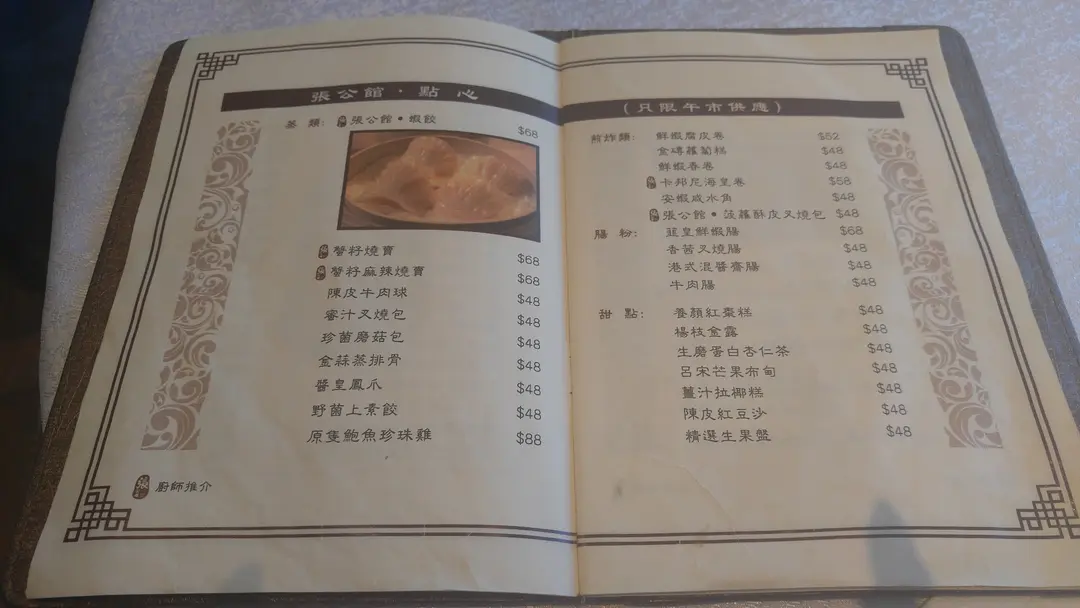 張公館・點心
蒸類: 張公館•蝦餃 $68
蟹籽燒賣 $68
蟹籽麻辣燒賣 $68
陳皮牛肉球 $48
蜜汁叉燒包 $48
珍菌磨菇包 $48
金蒜蒸排骨 $48
醬皇鳳爪 $48
野菌上素餃 $48
原隻鮑魚珍珠雞 $88
張 廚師推介
(只限午市供應)
煎炸類: 鮮蝦腐皮卷 $52
金磚蘿蔔糕 $48
鮮蝦春卷 $48
卡邦尼海皇卷 $58
安蝦咸水角 $48
張公館•菠蘿酥皮叉燒包 $48
腸粉: 韮皇鮮蝦腸 $68
香茜叉燒腸 $48
港式混醬齋腸 $48
牛肉腸 $48
甜點: 養顏紅棗糕 $48
楊枝金露 $48
生磨蛋白杏仁茶 $48
呂宋芒果布甸 $48
薑汁拉椰糕 $48
陳皮紅豆沙 $48
精選生果盤 $48